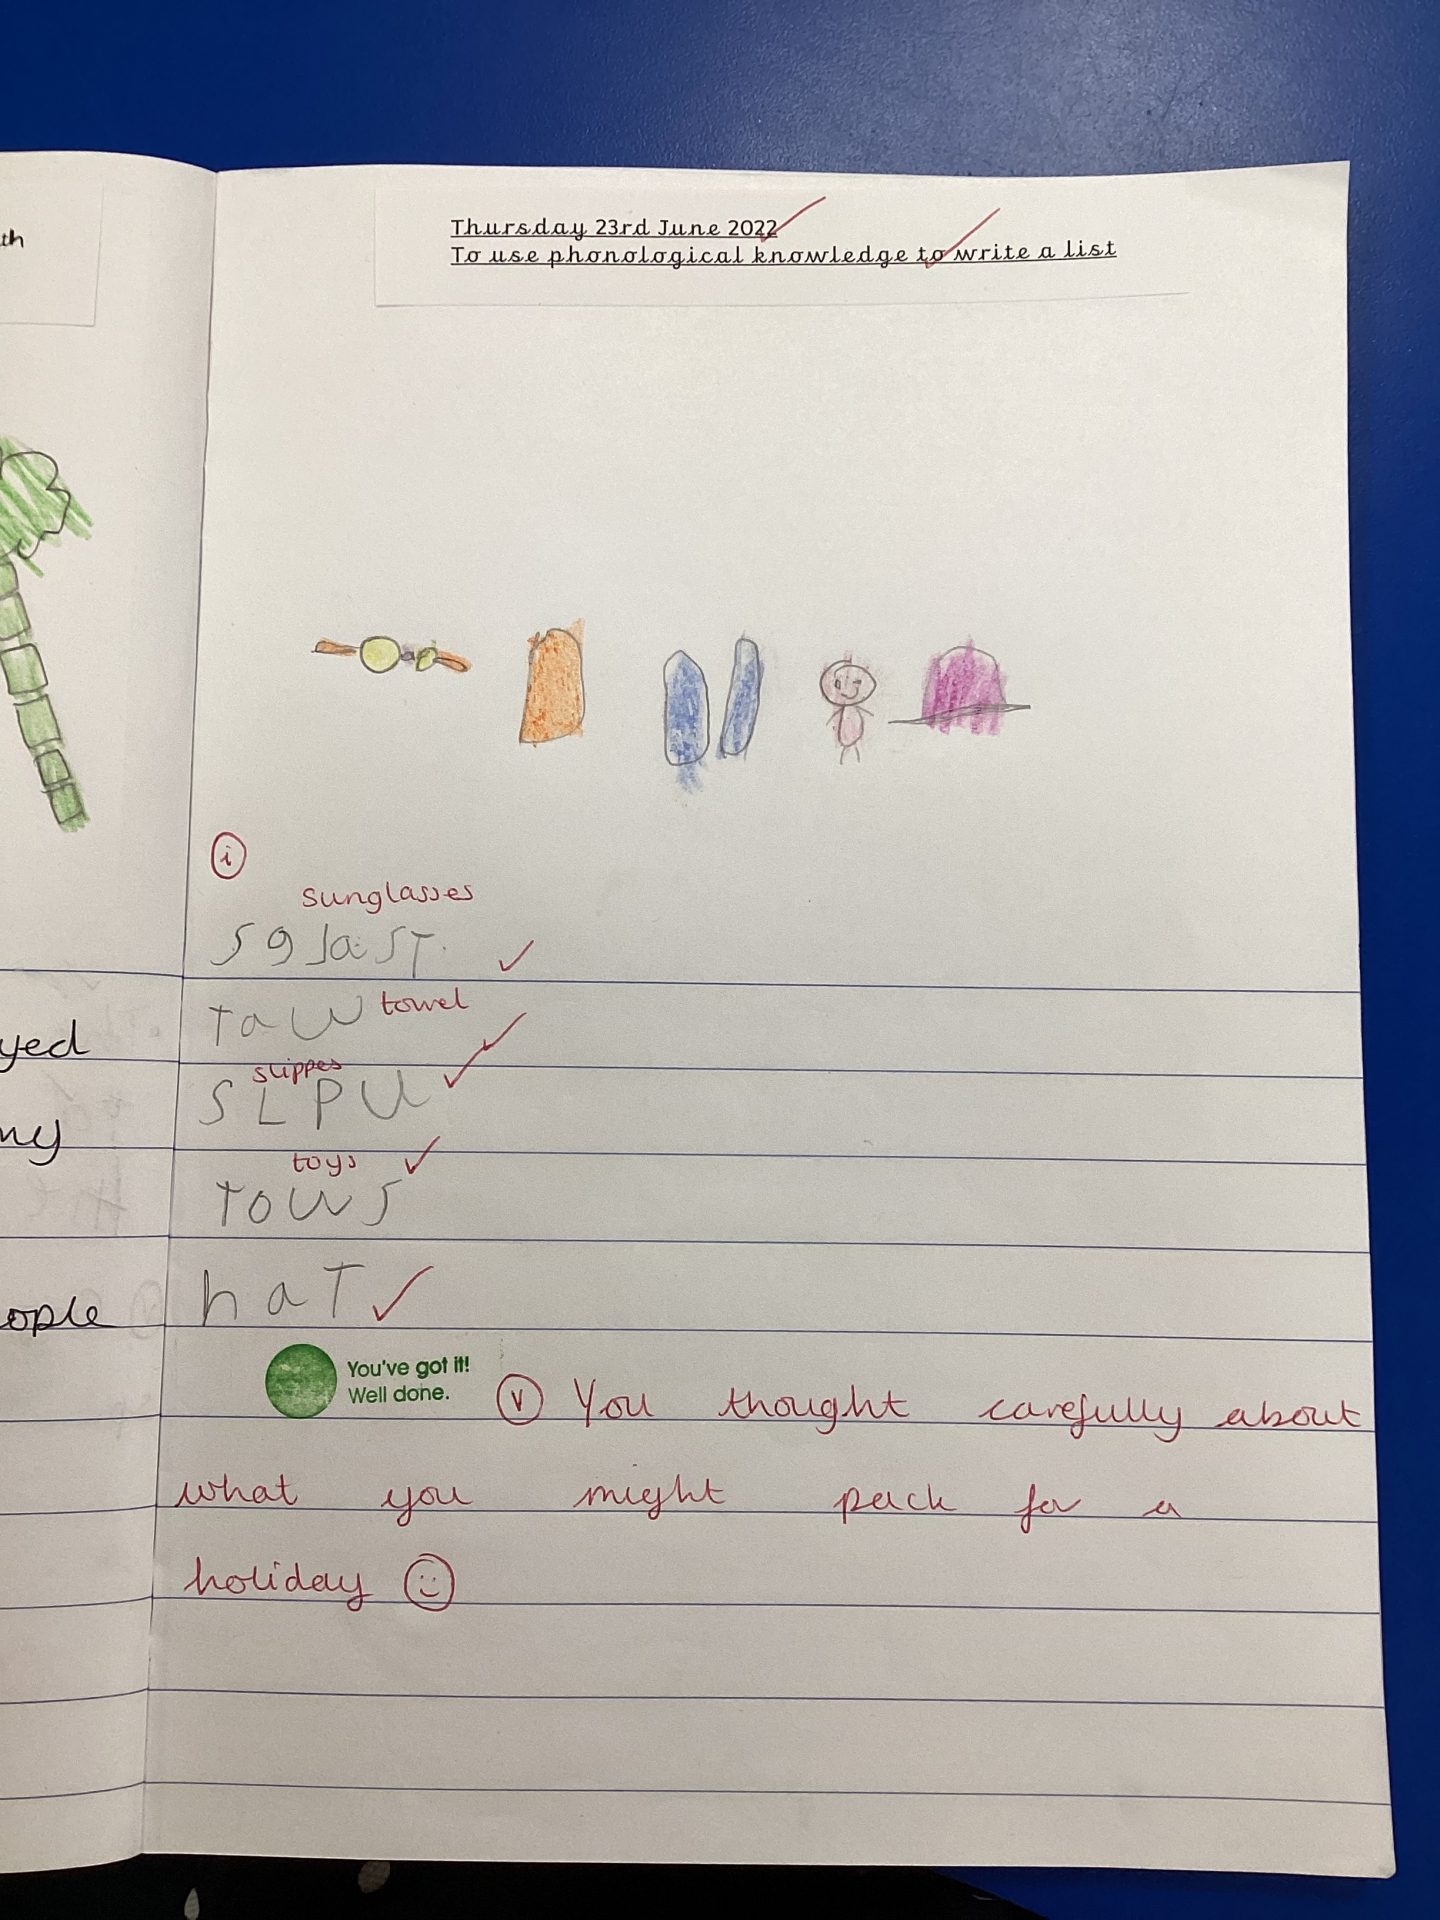 th
yed
ny
ople
Thursday 23rd June 2022
To use phonological knowledge to write a list
i
sunglasses
sglast
taw towel
slippes
SLPU
toys
tows
haT
You've got it!
Well done.
V You thought carefully about
what you might pack for a
holiday